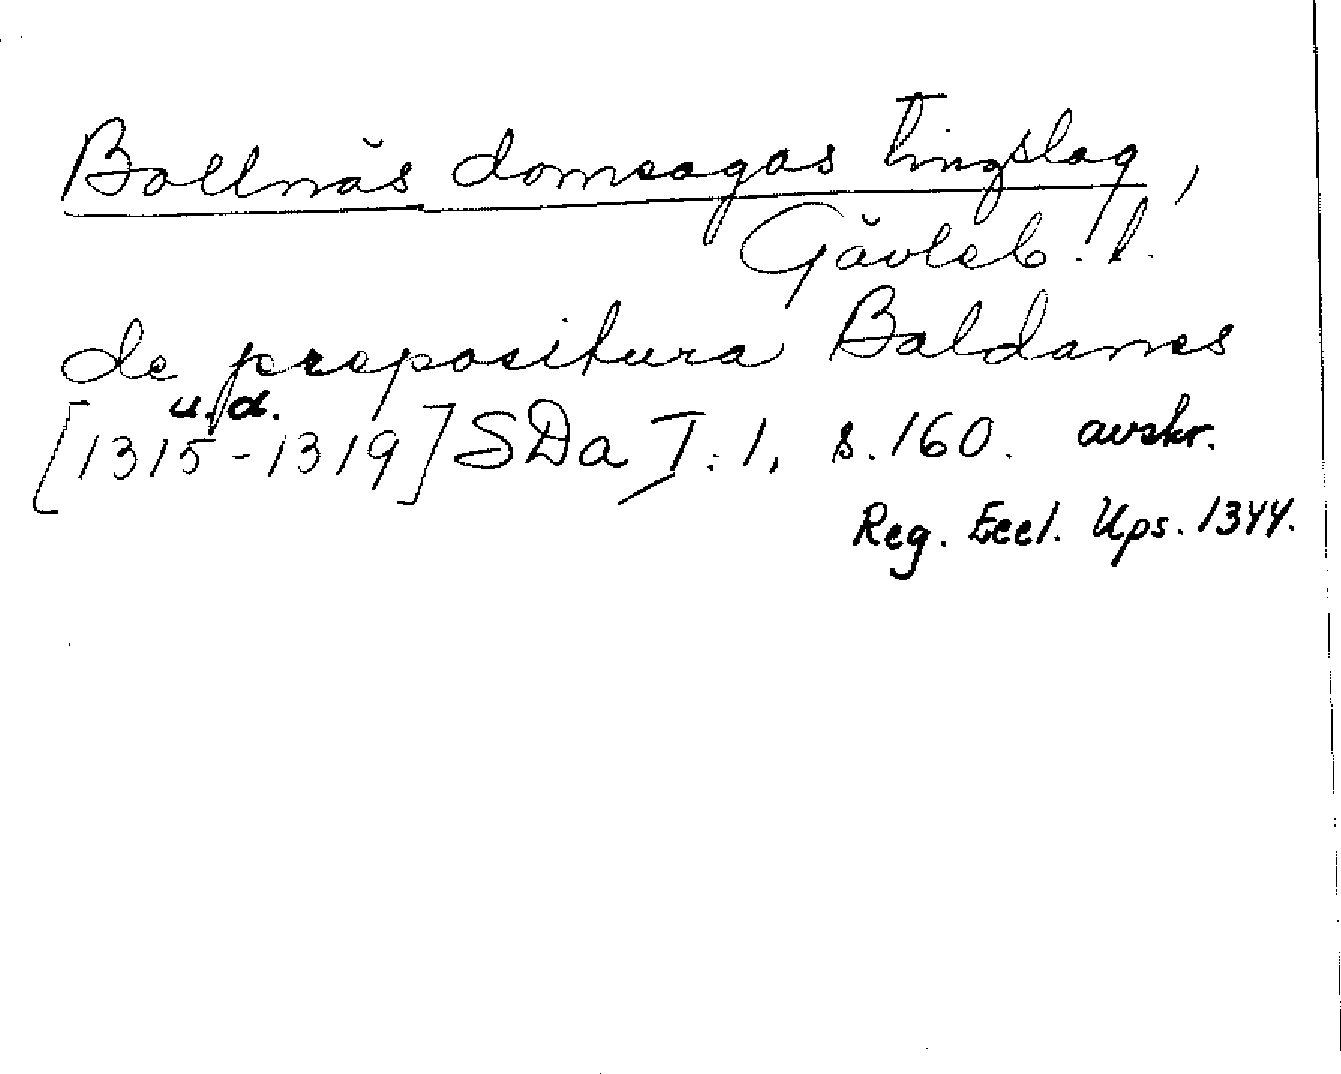 Bollnäs domsagas Tingslag,
Gävleb. l.
de prepositura Baldanes
u. d.
[1315-1319] SDa I:1, s. 160. avskr.
Reg. Eccl. Ups. 1344.